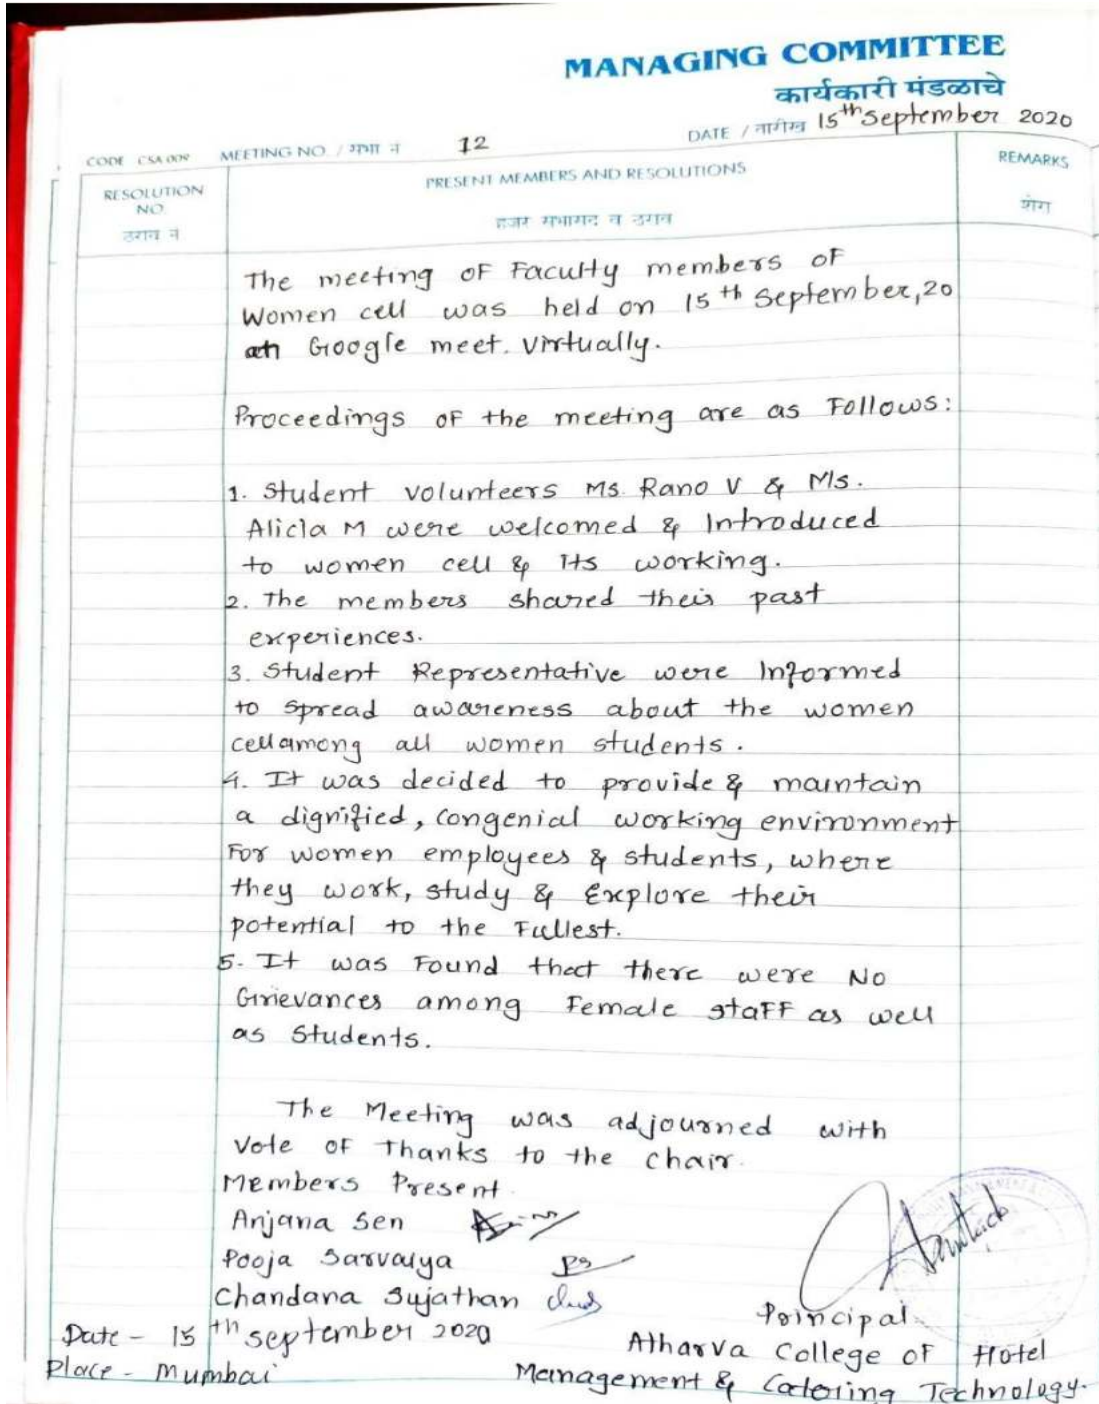 MANAGING COMMITTEE
कार्यकारी मंडळाचे
DATE / तारीख 15th September 2020
CODE CSA 009 MEETING NO. / सभा नं 12
RESOLUTION NO. ठराव नं
PRESENT MEMBERS AND RESOLUTIONS
हजर सभासद व ठराव
REMARKS
शेरा
The meeting of Faculty members of
Women cell was held on 15th September, 20
on Google meet. Virtually.
Proceedings of the meeting are as Follows:
1. Student volunteers Ms. Rano V & Ms.
Alicia M were welcomed & Introduced
to women cell & its working.
2. The members shared their past
experiences.
3. Student Representative were Informed
to spread awareness about the women
cell among all women students.
4. It was decided to provide & maintain
a dignified, congenial working environment
For women employees & students, where
they work, study & Explore their
potential to the Fullest.
5. It was Found that there were No
Grievances among Female staff as well
as Students.
The Meeting was adjourned with
Vote of Thanks to the chair.
Members Present
Anjana Sen
Pooja Sarvaiya
Chandana Sujathan
Date - 15th September 2020
Place - Mumbai
Principal
Atharva College of Hotel
Management & Catering Technology.